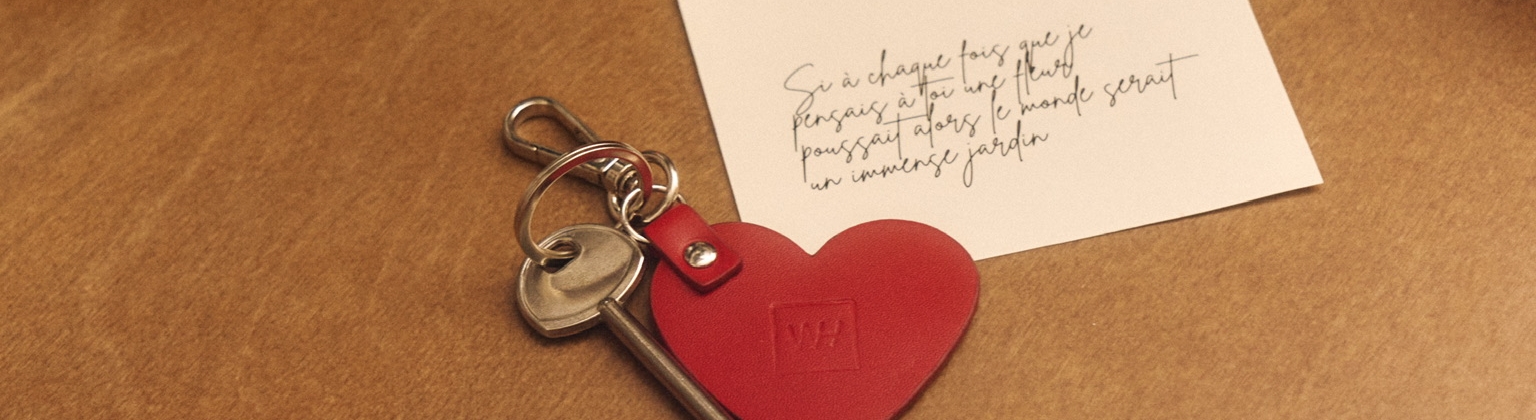 Si à chaque fois que je
pensais à toi une fleur
poussait alors le monde serait
un immense jardin
WH